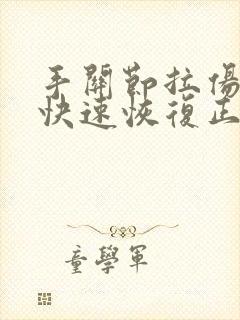 手關節拉傷
快速恢復正
童學軍